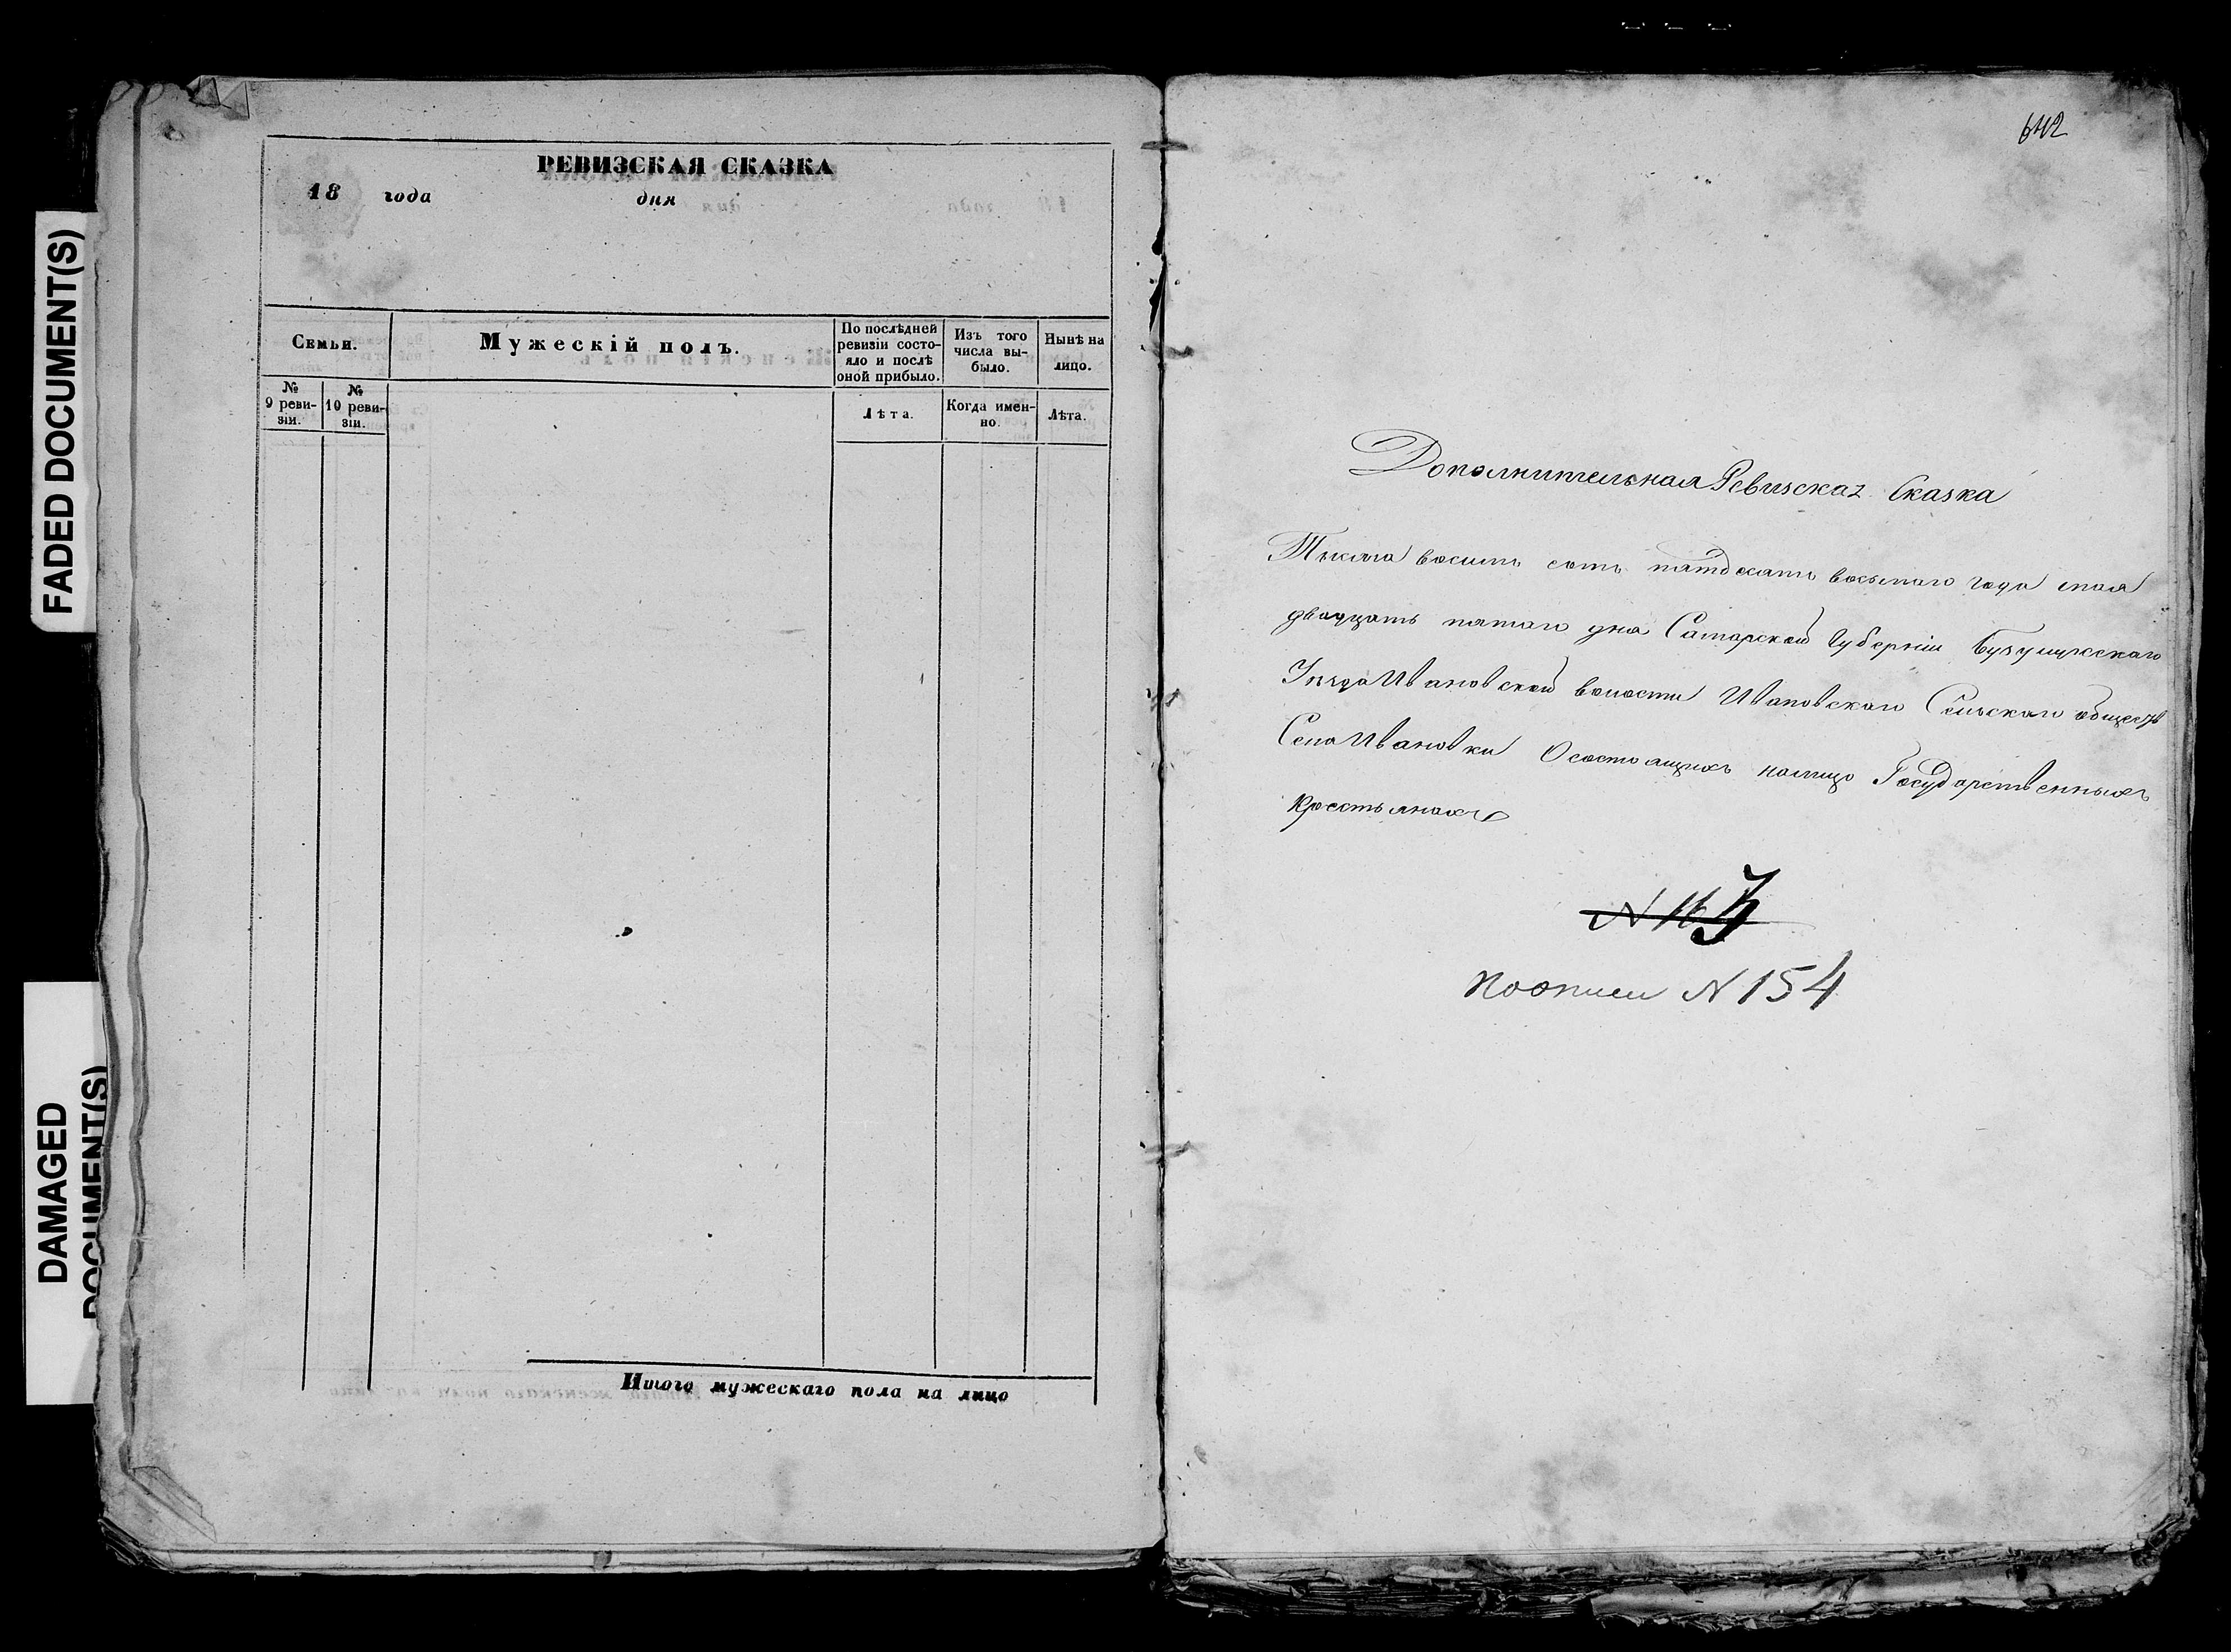 FADED DOCUMENT(S)
DAMAGED
DOCUMENT(S)
РЕВИЗСКАЯ СКАЗКА
18 года дня
Семьи.
Мужескій полъ.
По послѣдней
ревизіи состо-
яло и послѣ
оной прибыло.
Изъ того
числа вы-
было.
Нынѣ на
лицо.
№
9 реви-
зіи.
№
10 реви-
зіи.
Лѣта.
Когда имен-
но.
Лѣта.
Итого мужескаго пола на лицо
642
Дополнительная Ревизская Сказка
Тысяча восимь сотъ пятдесятъ восьмаго года мая
двадцать пятаго дня Самарской Губерніи Бузулукскаго
Уѣзда Ивановской волости Ивановскаго Сельскаго обществ
Села Ивановки О состоящихъ налицо Государственныхъ
крестьянахъ
N 163
по описи N 154